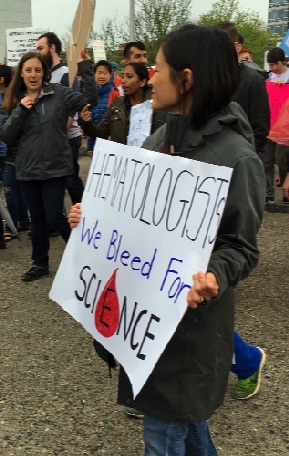 HEMATOLOGISTS
We Bleed For
SCIENCE